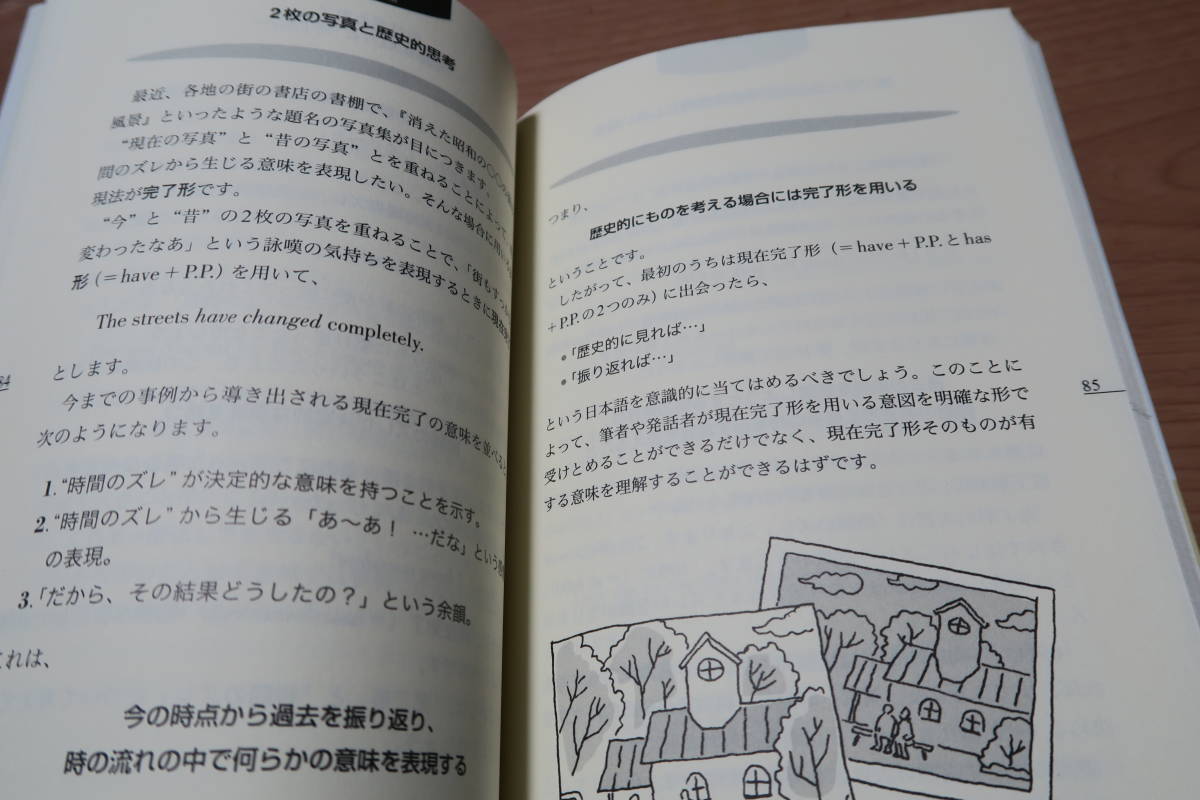 2枚の写真と歴史的思考
最近、各地の街の書店の書棚で、『消えた昭和の〇〇の
風景』といったような題名の写真集が目につきます。
“現在の写真”と“昔の写真”とを重ねることによって、
間のズレから生じる意味を表現したい。そんな場合に用い
現法が完了形です。
“今”と“昔”の2枚の写真を重ねることで、「街もすっか
変わったなあ」という詠嘆の気持ちを表現するときに現在完
形（＝have＋P.P.）を用いて、
The streets have changed completely.
とします。
今までの事例から導き出される現在完了の意味を並べると
次のようになります。
1.“時間のズレ”が決定的な意味を持つことを示す。
2.“時間のズレ”から生じる「あ〜あ！ …だな」という
の表現。
3.「だから、その結果どうしたの？」という余韻。
これは、
今の時点から過去を振り返り、
時の流れの中で何らかの意味を表現する
84
つまり、
歴史的にものを考える場合には完了形を用いる
ということです。
したがって、最初のうちは現在完了形（＝have＋P.P.とhas
＋P.P.の2つのみ）に出会ったら、
•「歴史的に見れば…」
•「振り返れば…」
という日本語を意識的に当てはめるべきでしょう。このことに
よって、筆者や発話者が現在完了形を用いる意図を明確な形で
受けとめることができるだけでなく、現在完了形そのものが有
する意味を理解することができるはずです。
85